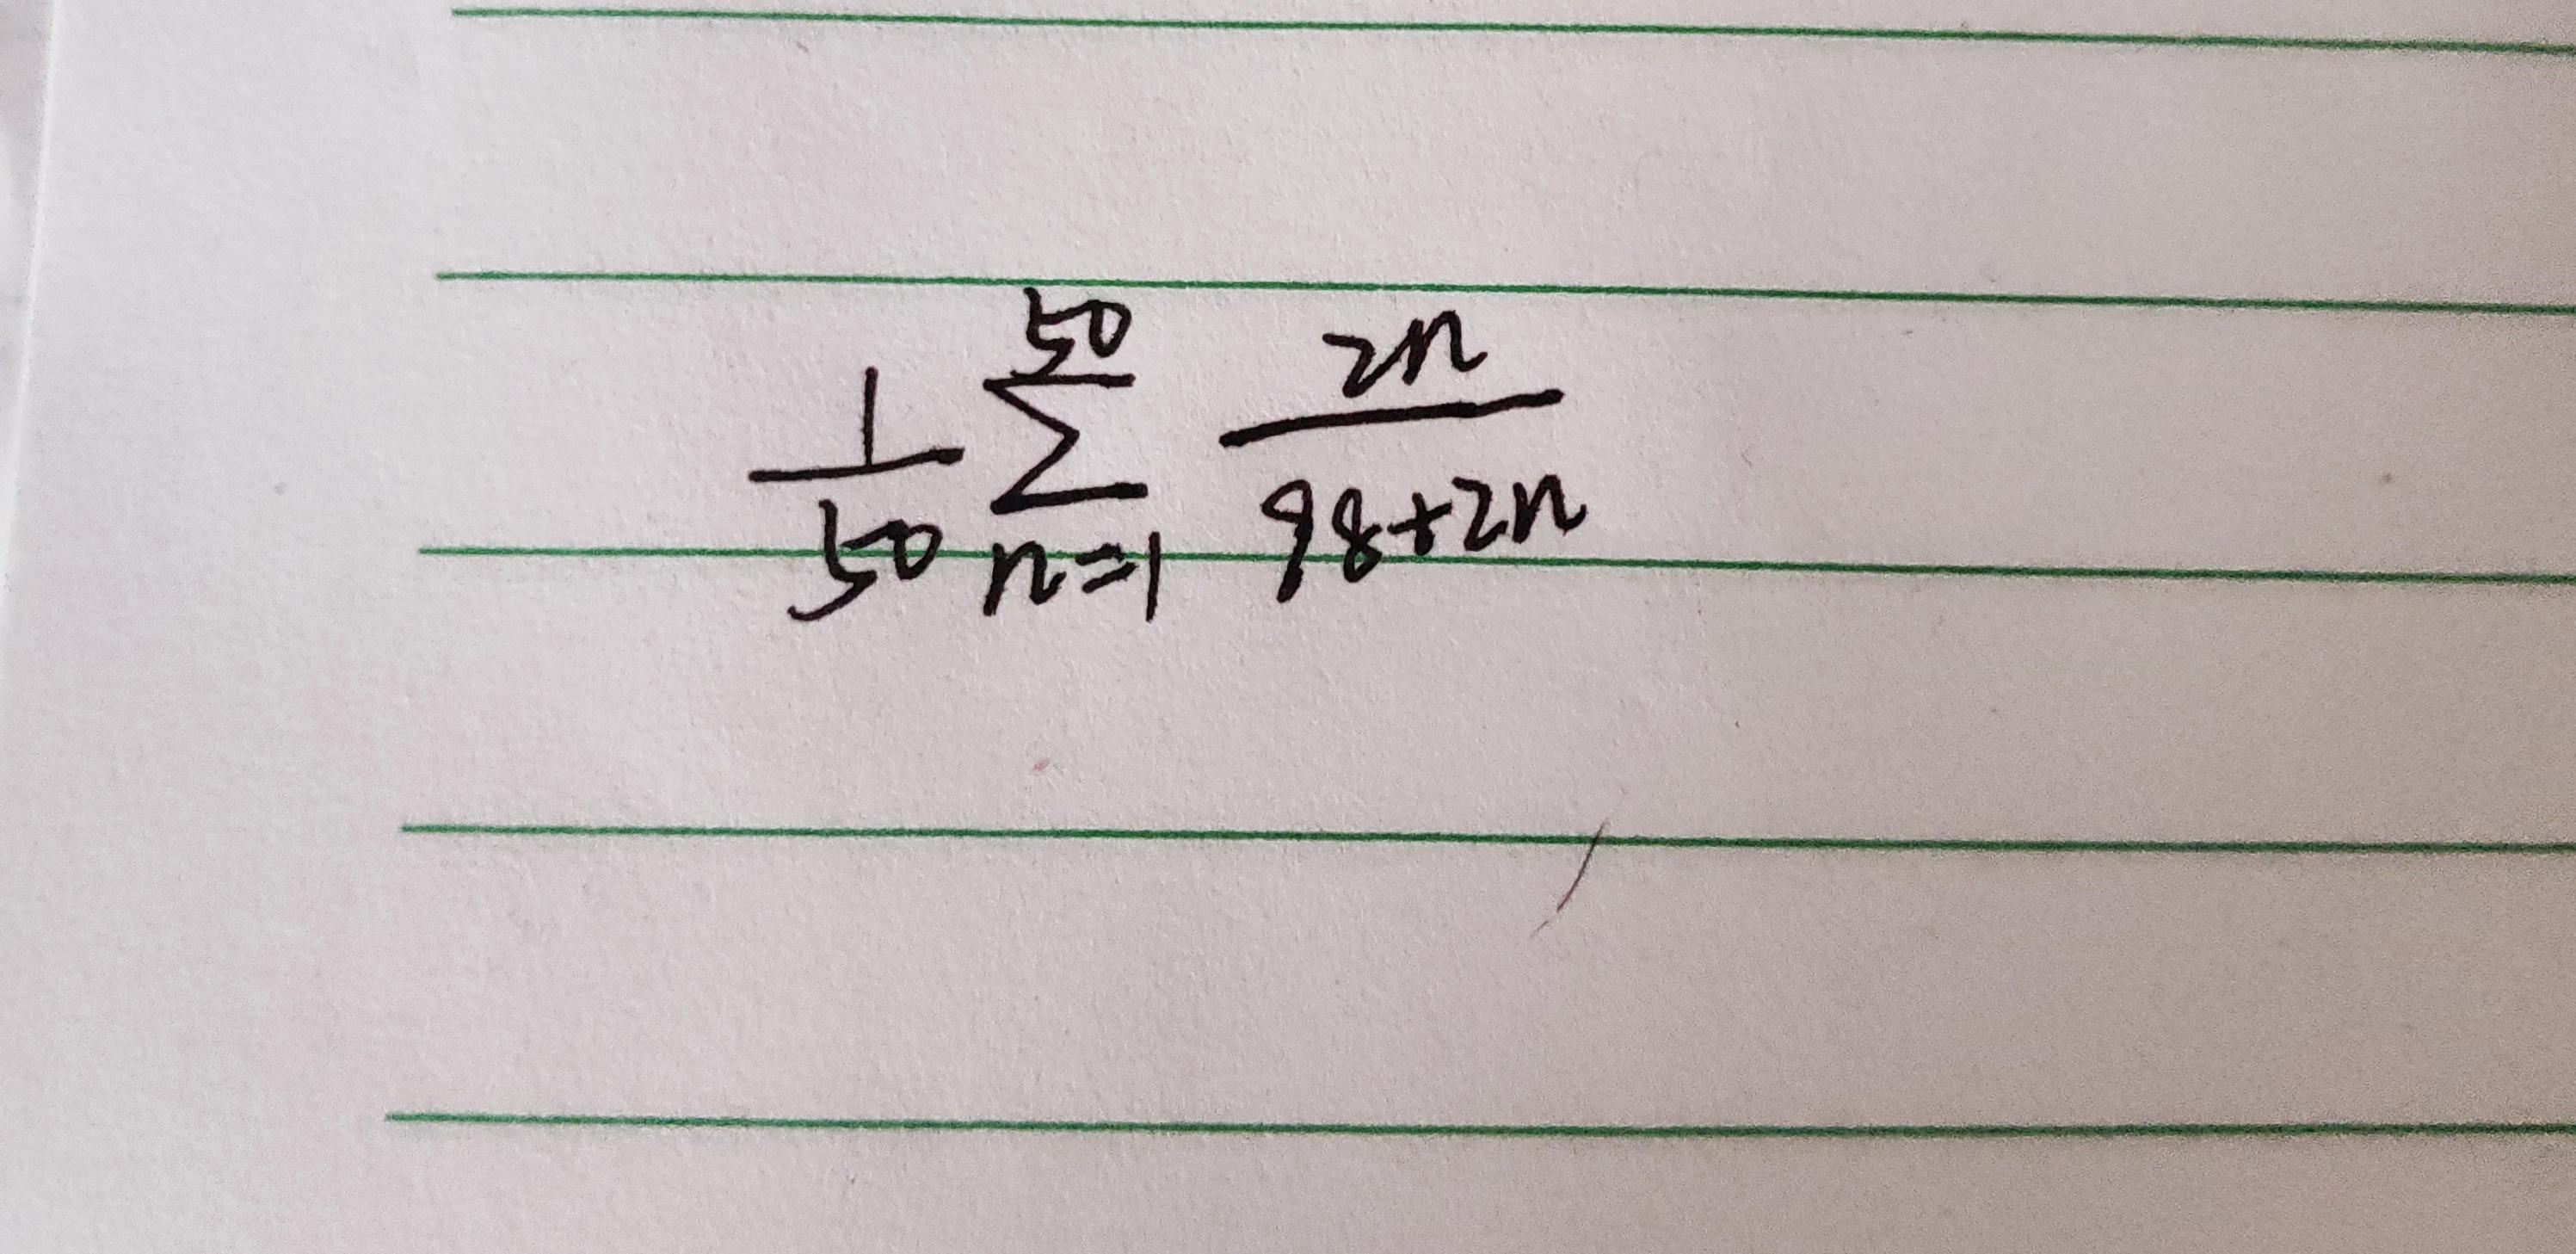 \frac{1}{50} \sum_{n=1}^{50} \frac{2n}{98+2n}